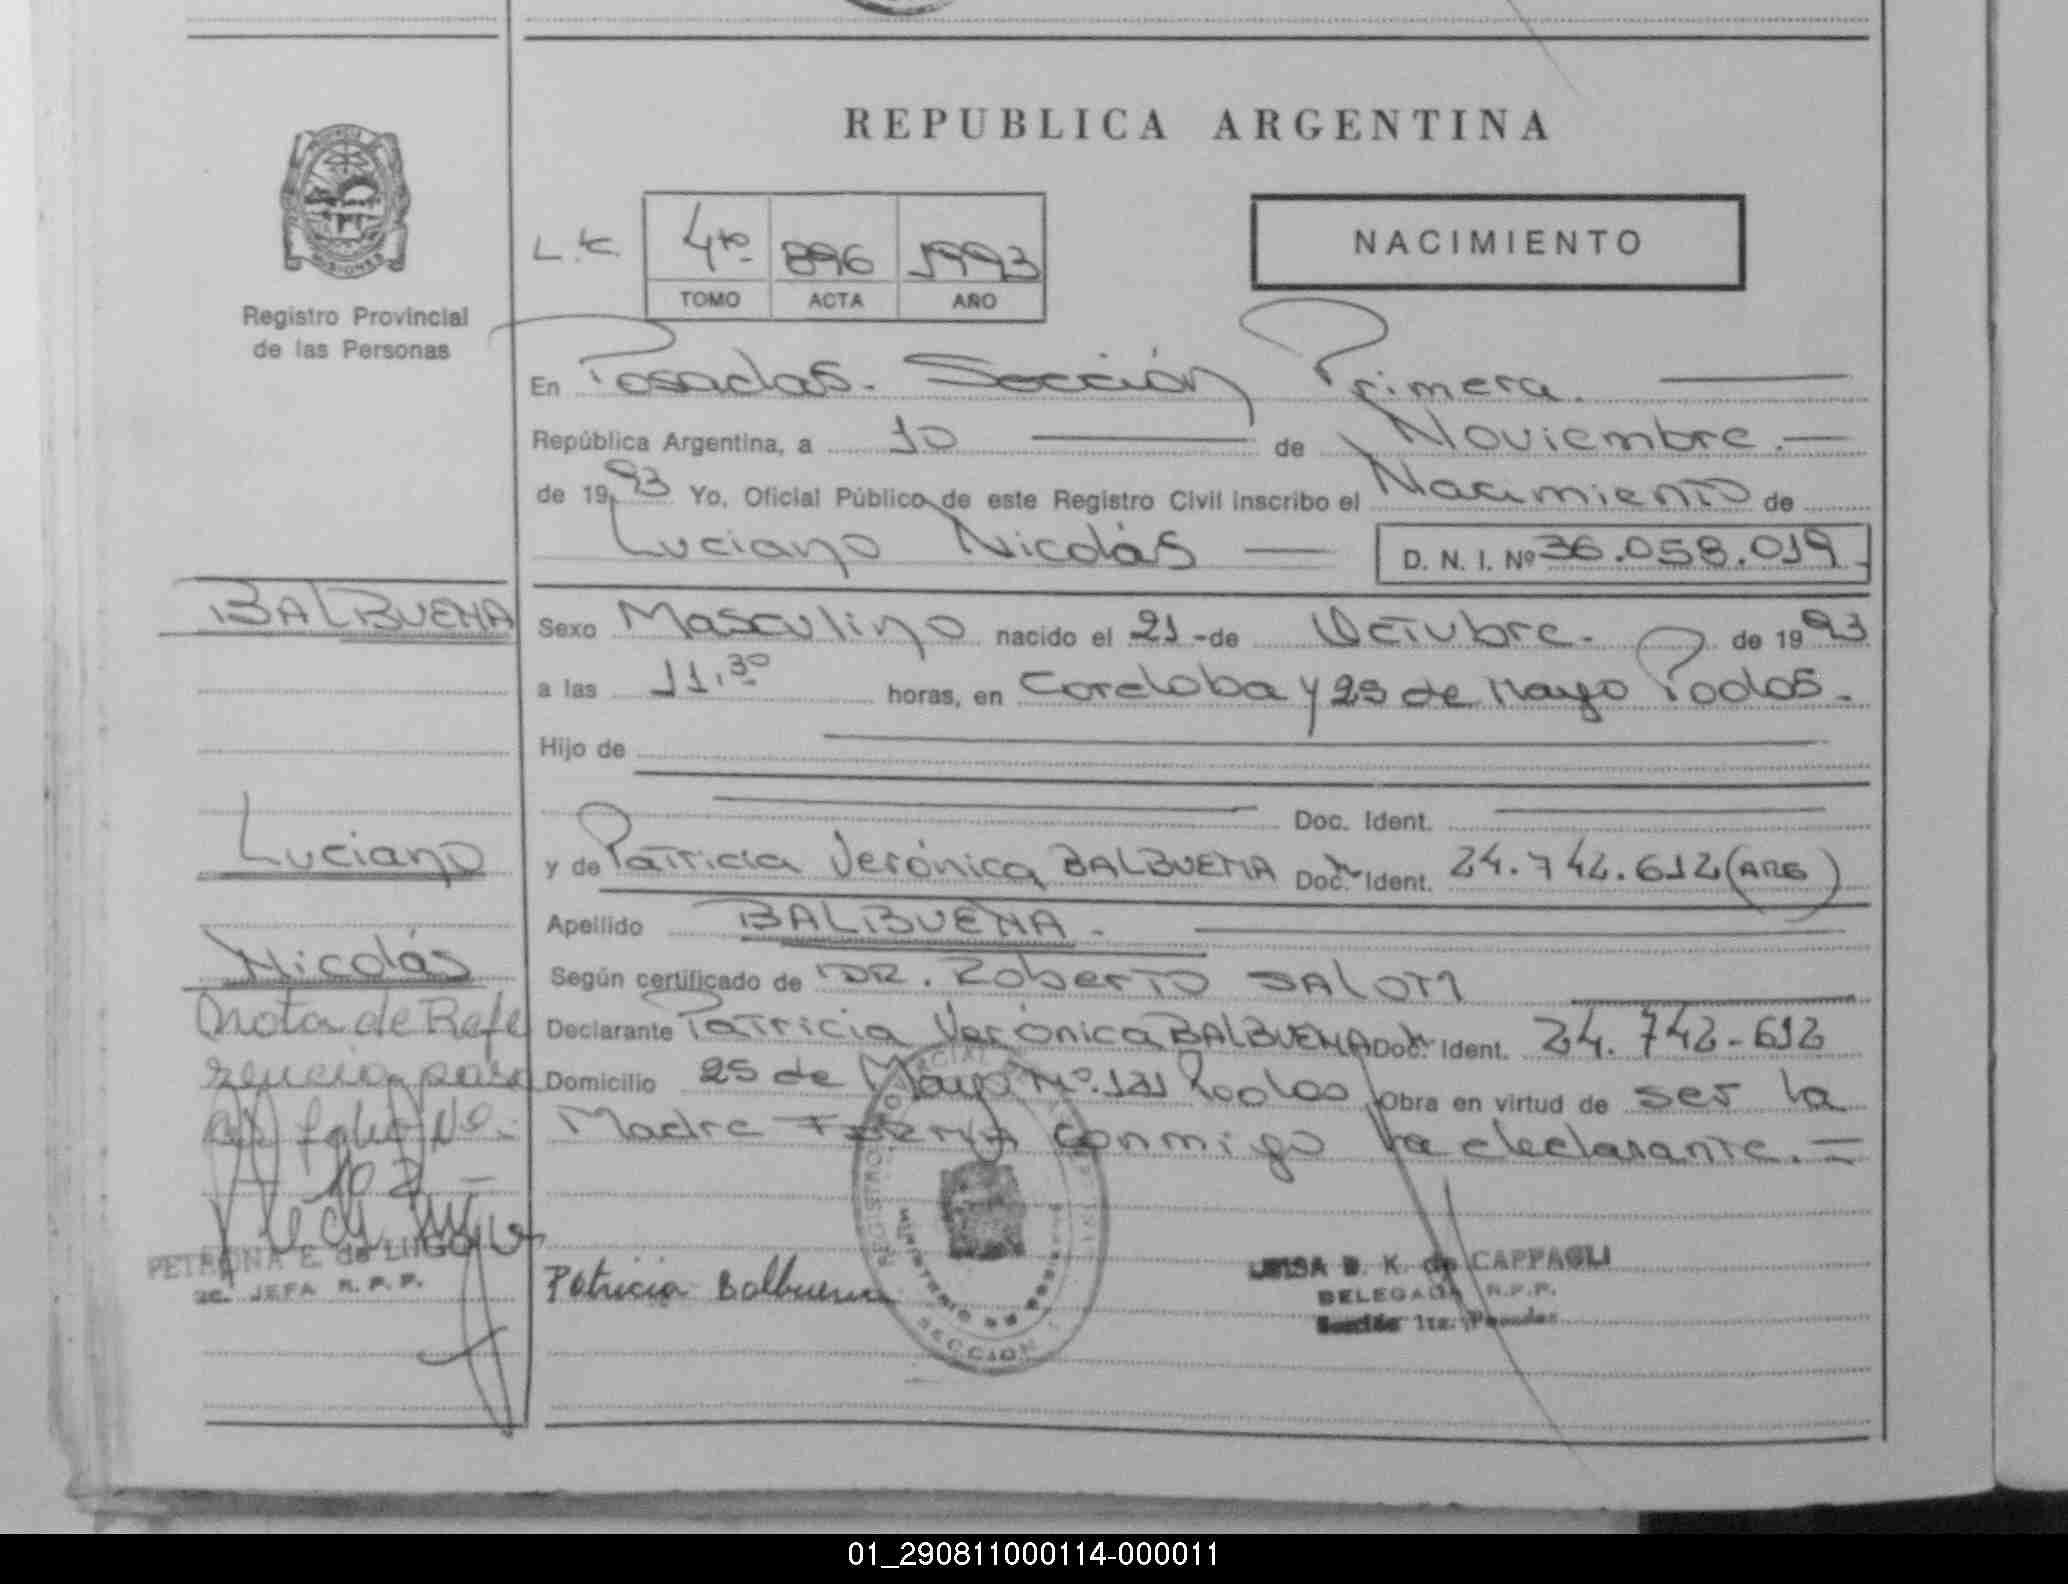 REPUBLICA ARGENTINA
MISIONES
Registro Provincial
de las Personas
L.C. 4to 896 1993
TOMO ACTA AÑO
NACIMIENTO
En Posadas. Sección Primera.
República Argentina, a 10 de Noviembre.
de 1993 Yo, Oficial Público de este Registro Civil inscribo el Nacimiento de
Luciano Nicolás D. N. I. Nº 36.058.019
BALBUENA
Sexo Masculino nacido el 21 de Octubre. de 1993
a las 11,30 horas, en Cordoba y 25 de Mayo Podas.
Hijo de
Doc. Ident.
Luciano
y de Patricia Verónica BALBUENA Doc. Ident. 24.742.612 (ARG)
Apellido BALBUENA.
Nicolás
Según certificado de DR. Roberto SALOM
Declarante Patricia Verónica BALBUENA Doc. Ident. 24.742-612
Domicilio 25 de Mayo Nº. 121 Podas Obra en virtud de ser la
Madre Firma conmigo la declarante. =
nota de Refe
rencia pasa
al folio Nº
102
PETRONA E. de LUGO
2c. JEFA R. P. P.
Patricia Balbuena
REGISTRO PROVINCIAL
MINISTERIO DE GOBIERNO
SECCION 1
LUISA B. K. de CAPPAGLI
DELEGADA R.P.P.
Sección 1ra. Posadas
01_290811000114-000011